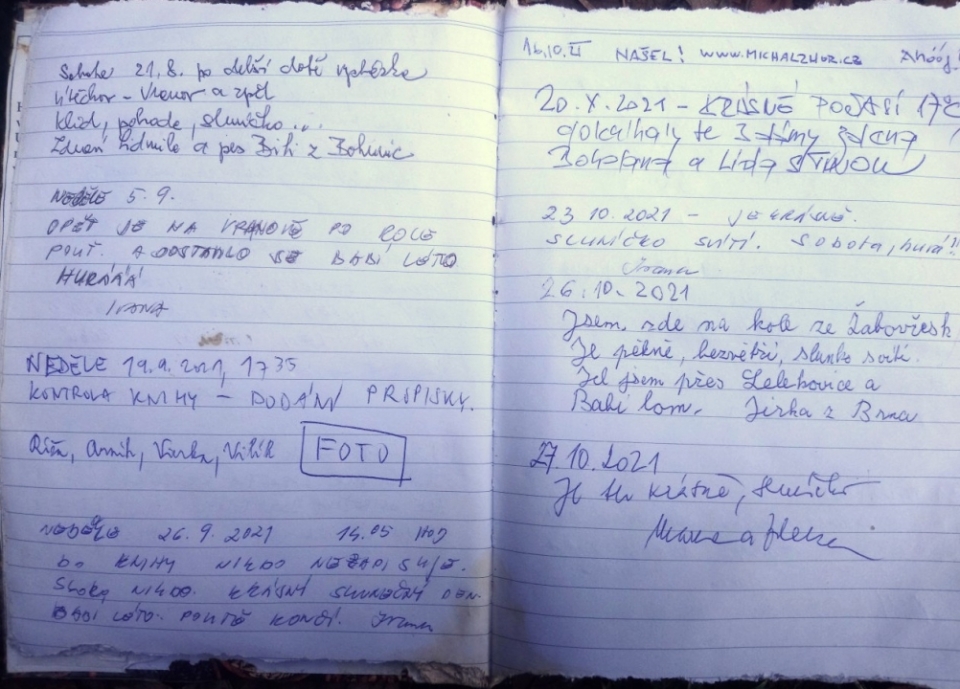 Sobota 21.8. po delší době vycházka
Útěchov - Vranov a zpět
Klid, pohoda, sluníčko...
Zdraví Ludmila a pes Biki z Bohunic
NEDĚLE 5.9.
OPĚT JE NA VRANOVĚ PO ROCE
POUŤ. A DOSTAVILO SE BABÍ LÉTO
HURÁÁÁ
IVANA
NEDĚLE 19.9.2021, 17 35
KONTROLA KNIHY - DODÁNÍ PROPISKY.
FOTO
NEDĚLE 26.9.2021 14.05 HOD
DO KNIHY NIKDO NEZAPISUJE.
SKORO NIKDO. KRÁSNÝ SLUNEČNÍ DEN.
BABÍ LÉTO. POUTĚ KONČÍ. Ivana
16.10.21 NAŠEL! WWW.MICHALZHOR.CZ Ahóój!
20.X.2021 - KRÁSNÉ POČASÍ 17°C
a Lída
23 10.2021 - JE KRÁSNĚ.
SLUNÍČKO SVÍTÍ. SOBOTA, hurá!!
Ivana
26.10.2021
Jsem zde na kole ze Žabovřesk
Je pěkně, bezvětří, slunko svítí.
Jel jsem přes Lelekovice a
Babí lom. Jirka z Brna
27.10.2021
Je tu krásně, sluníčko